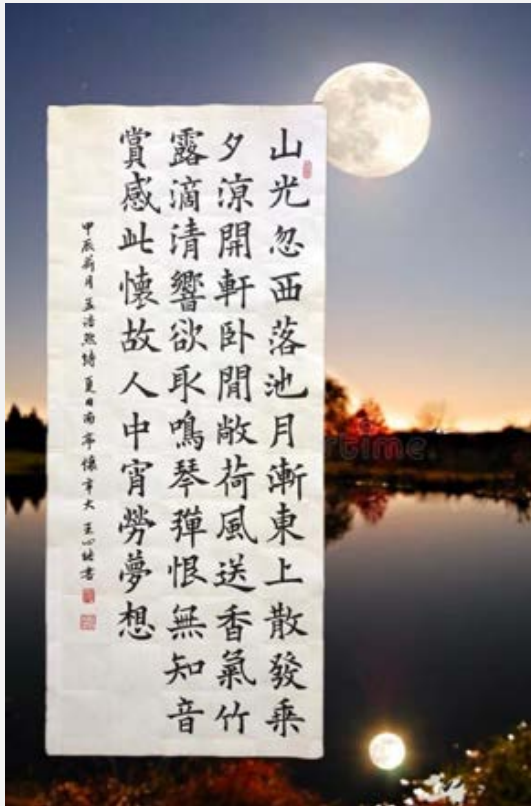 山光忽西落池月漸東上散發乘
夕涼開軒卧閒敞荷風送香氣竹
露滴清響欲取鳴琴彈恨無知音
賞感此懷故人中宵勞夢想
甲辰荷月孟浩然詩夏日南亭懷辛大王心
time.